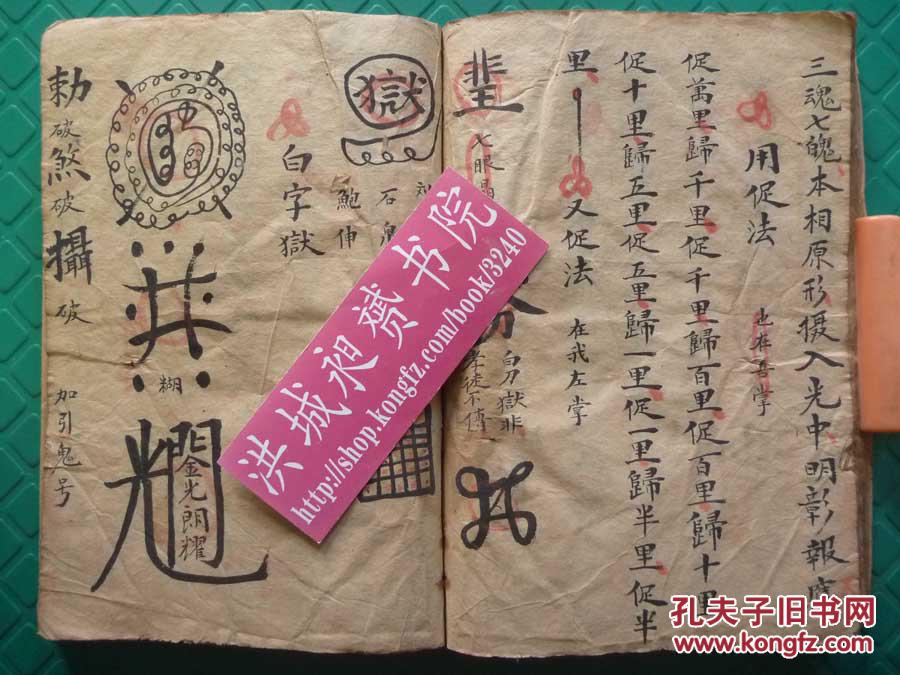 三魂七魄本相原形摄入光中明彰報
用促法 也在吾掌
促萬里歸千里促千里歸百里促百里歸十里
促十里歸五里促五里歸一里促一里歸半里促半
里 又促法 在我左掌
七眼
白刀獄非
孝徒不傳
獄
石
鮑伸
白字獄
糊
金光朗耀
勅破煞破攝破 加引鬼号
洪城昶赟书院
http://shop.kongfz.com/book/3240
孔夫子旧书网
www.kongfz.com